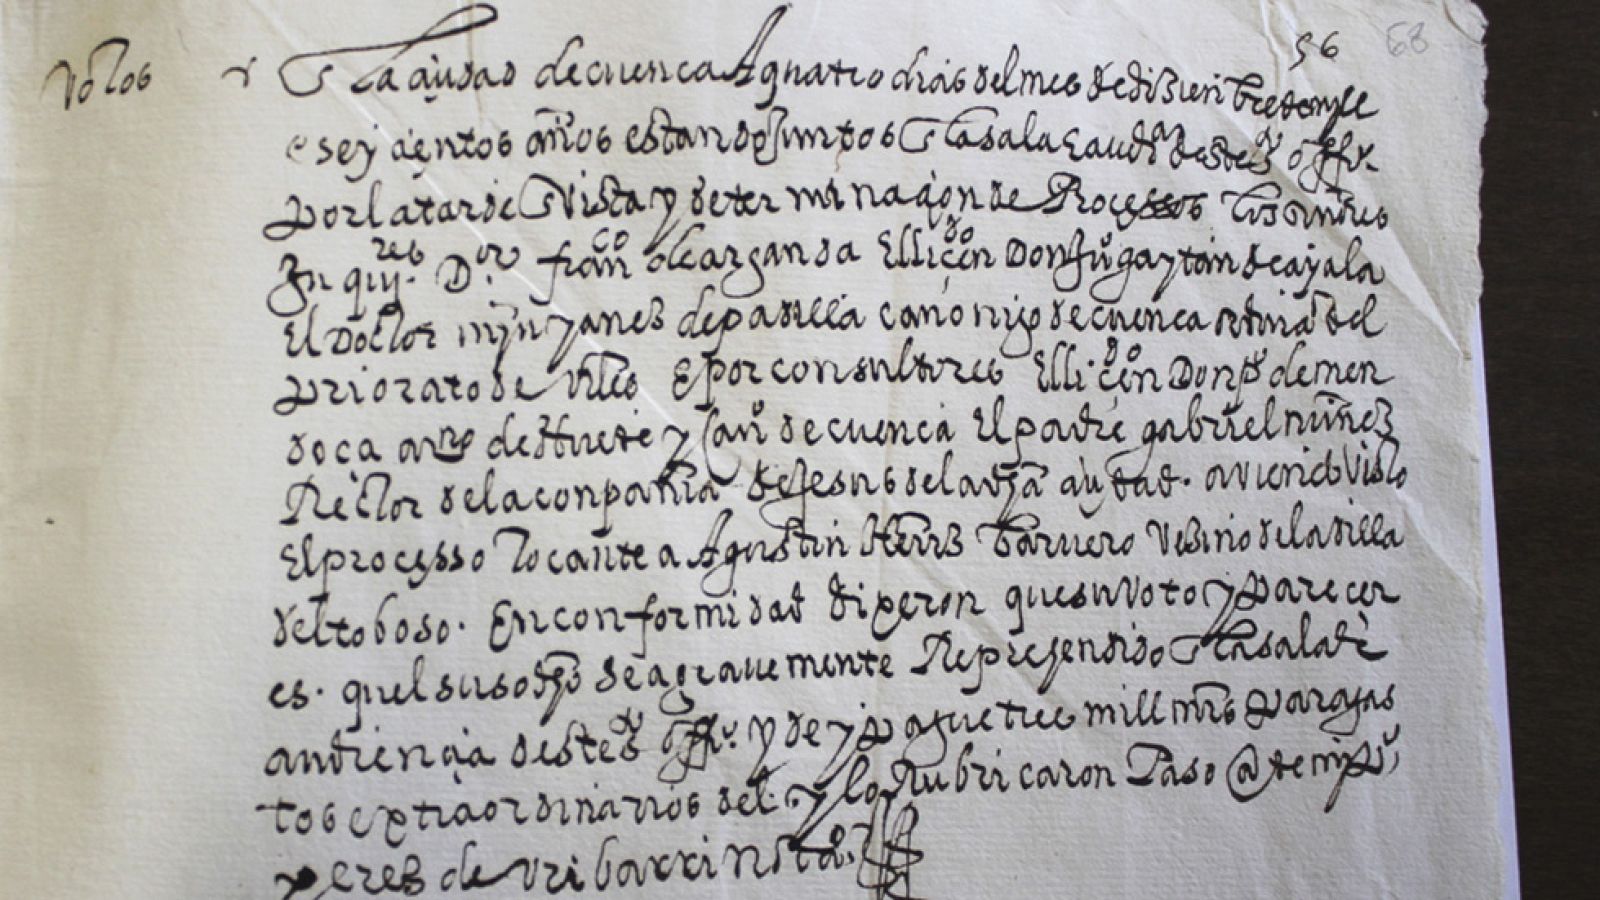 56 68
Votos En la ciudad de cuenca A quatro dias del mes de diziembre de mill
e seyscientos años estando juntos En la sala de audiª deste sto offiº
por la tarde En vista y determinaçion de Processos los señores
Inqres. Dor franco de arganda El licendo Don juº gaytan de ayala
El Doctor mjn yanez de padilla canonigo de cuenca ordinaº del
priorato de ucles E por consultores El licendo Don pº de men
doça arno de Huete y can.º de cuenca El padre gabriel nuñez
Rector de la conpañia de Jesus de la dha ciudad. aviendo visto
El processo tocante a Agustin Ortiz barvero vezino de la villa
del toboso. En conformidad dixeron que su voto y parecer
es. quel susodho sea gravemente Reprehendido En la sala de
audiençia deste sto offº. y de y pague tres mill mrs para gas
tos extraordinarios del. y lo Rubricaron Paso ante mi pº
perez de uribarri notº.